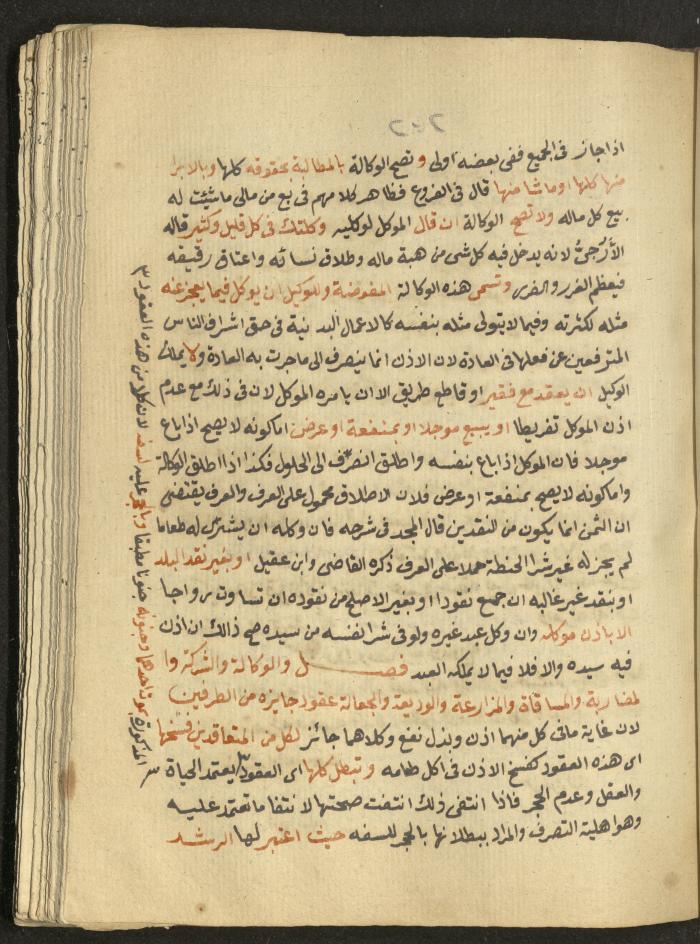 اذا جاز في الجميع ففي بعضه اولى وتصح الوكالة بالمطالبة بحقوقه كلها وبالابرا
منها كلها او ما شا منها قال في الفروع فظاهر كلامهم في بع من مالي ما شئت له
بيع كل ماله ولا تصح الوكالة ان قال الموكل لوكليه وكلتك في كل قليل وكثير قاله
الأزجيُّ لانه يدخل فيه كل شي من هبة ماله وطلاق نسائه واعتاق رقيقه
فيعظم الغرر والضرر وتسمى هذه الوكالة المفوضة وللوكيل ان يوكل فيما يعجز عنه
مثله لكثرته وفيما لا يتولى مثله بنفسه كالاعمال البدنية في حق اشراف الناس
المترفعين عن فعلها في العادة لان الاذن انما ينصرف الى ما جرت به العادة ولا يملك
الوكيل ان يعقد مع فقير او قاطع طريق الا ان يامره الموكل لان في ذلك مع عدم
اذن الموكل تفريطا او يبيع موجلا او بمنفعة او عرض اما كونه لا يصح اذا باع
موجلا فان الموكل اذا باع بنفسه واطلق انصرف الى الحلول فكذا اذا اطلق الوكالة
واما كونه لا يصح بمنفعة او عرض فلان الاطلاق محمول على العرف والعرف يقتضي
ان الثمن انما يكون من النقدين قال المجد في شرحه فان وكله ان يشتري له طعاما
لم يجز له غير شرا الحنطة حملا على العرف ذكره القاضي وابن عقيل او بغير نقد البلد
او بنقد غير غالبه ان جمع نقودا او بغير الاصلح من نقوده ان تساوت رواجا
الا باذن موكله وان وكل عبد غيره ولو في شرا نفسه من سيده صح ذالك ان اذن
فيه سيده والا فلا فيما لا يملكه العبد فصل والوكالة والشركة وا
لمضاربة والمساقاة والمزارعة والوديعة والجعالة عقود جايزه من الطرفين
لان غاية ما في كل منهما اذن وبذل نفع وكلاهما جائز لكل من المتعاقدين فسخها
اي هذه العقود كفسخ الاذن في اكل طعامه وتبطل كلها اي العقود يعتمد الحياة
والعقل وعدم الحجر فاذا انتفى ذلك انتفت صحتها لانتفا ما تعتمد عليه
وهو اهلية التصرف والمراد ببطلانها بالحجر للسفه حيث اعتبر لها الرشد
المذكورة بموت احدهما وجنونه جنونا مطبقا وبالحجر عليه لسفه لان كلا من هذه العقود